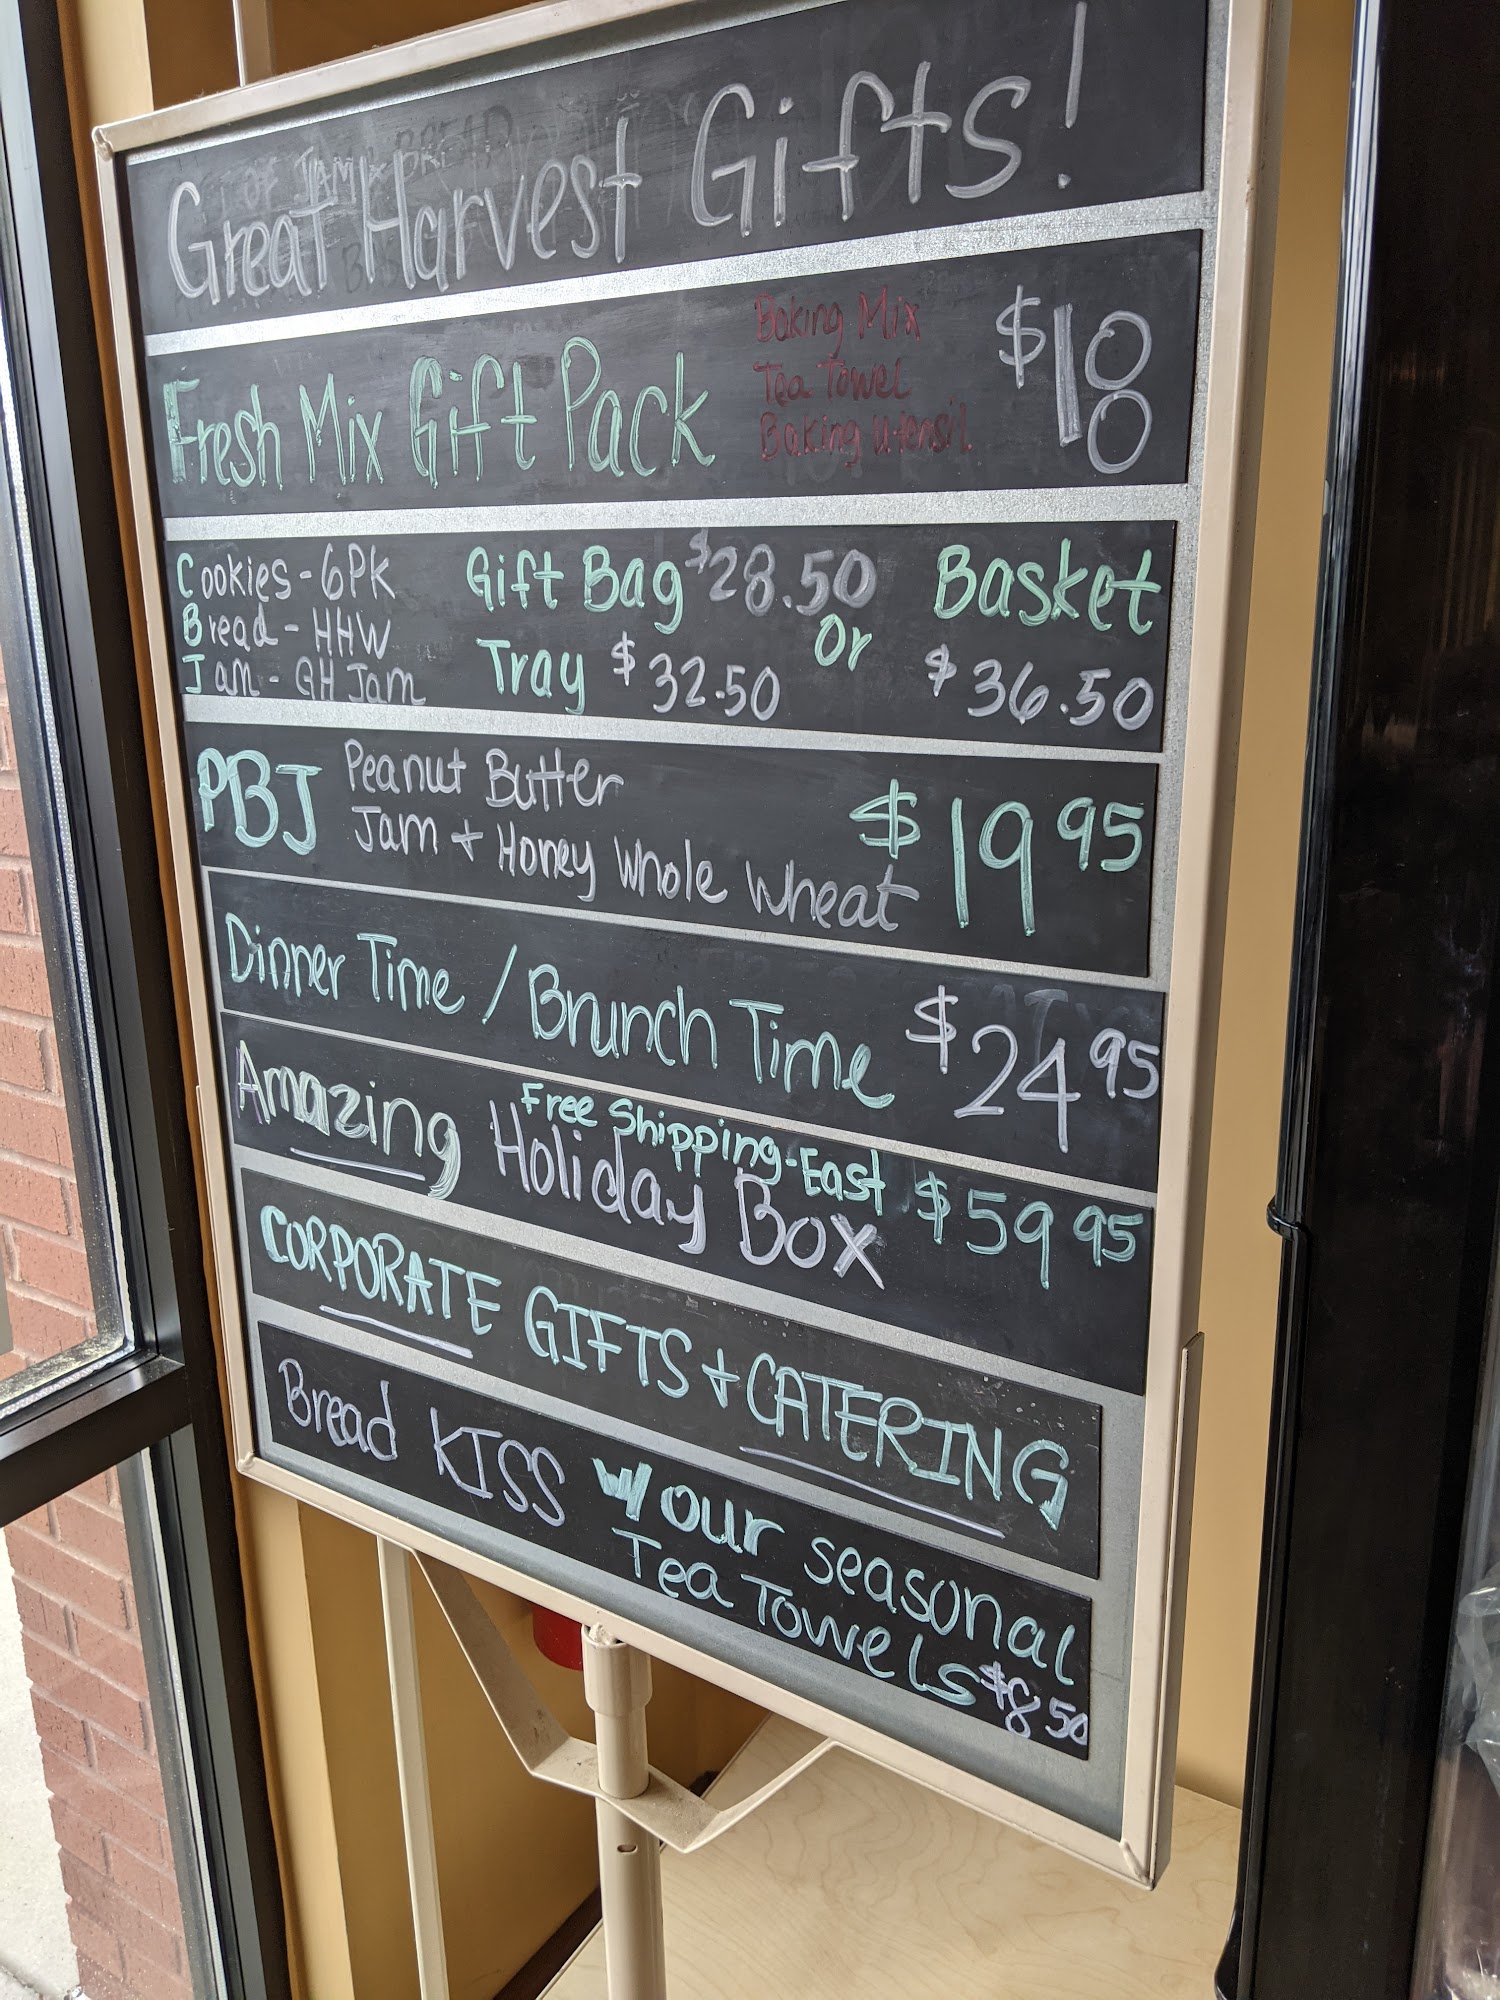 Great Harvest Gifts!
Fresh Mix Gift Pack
Baking Mix
Tea Towel
Baking Utensil
$18
Cookies - 6PK
Bread - HHW
Jam - GH Jam
Gift Bag $28.50
Tray $32.50
Or
Basket
$36.50
PBJ
Peanut Butter
Jam + Honey Whole Wheat
$19 95
Dinner Time / Brunch Time $24 95
Amazing Holiday Box
Free Shipping-East
$59 95
CORPORATE GIFTS + CATERING
Bread KISS w/ our seasonal
Tea Towels $8 50